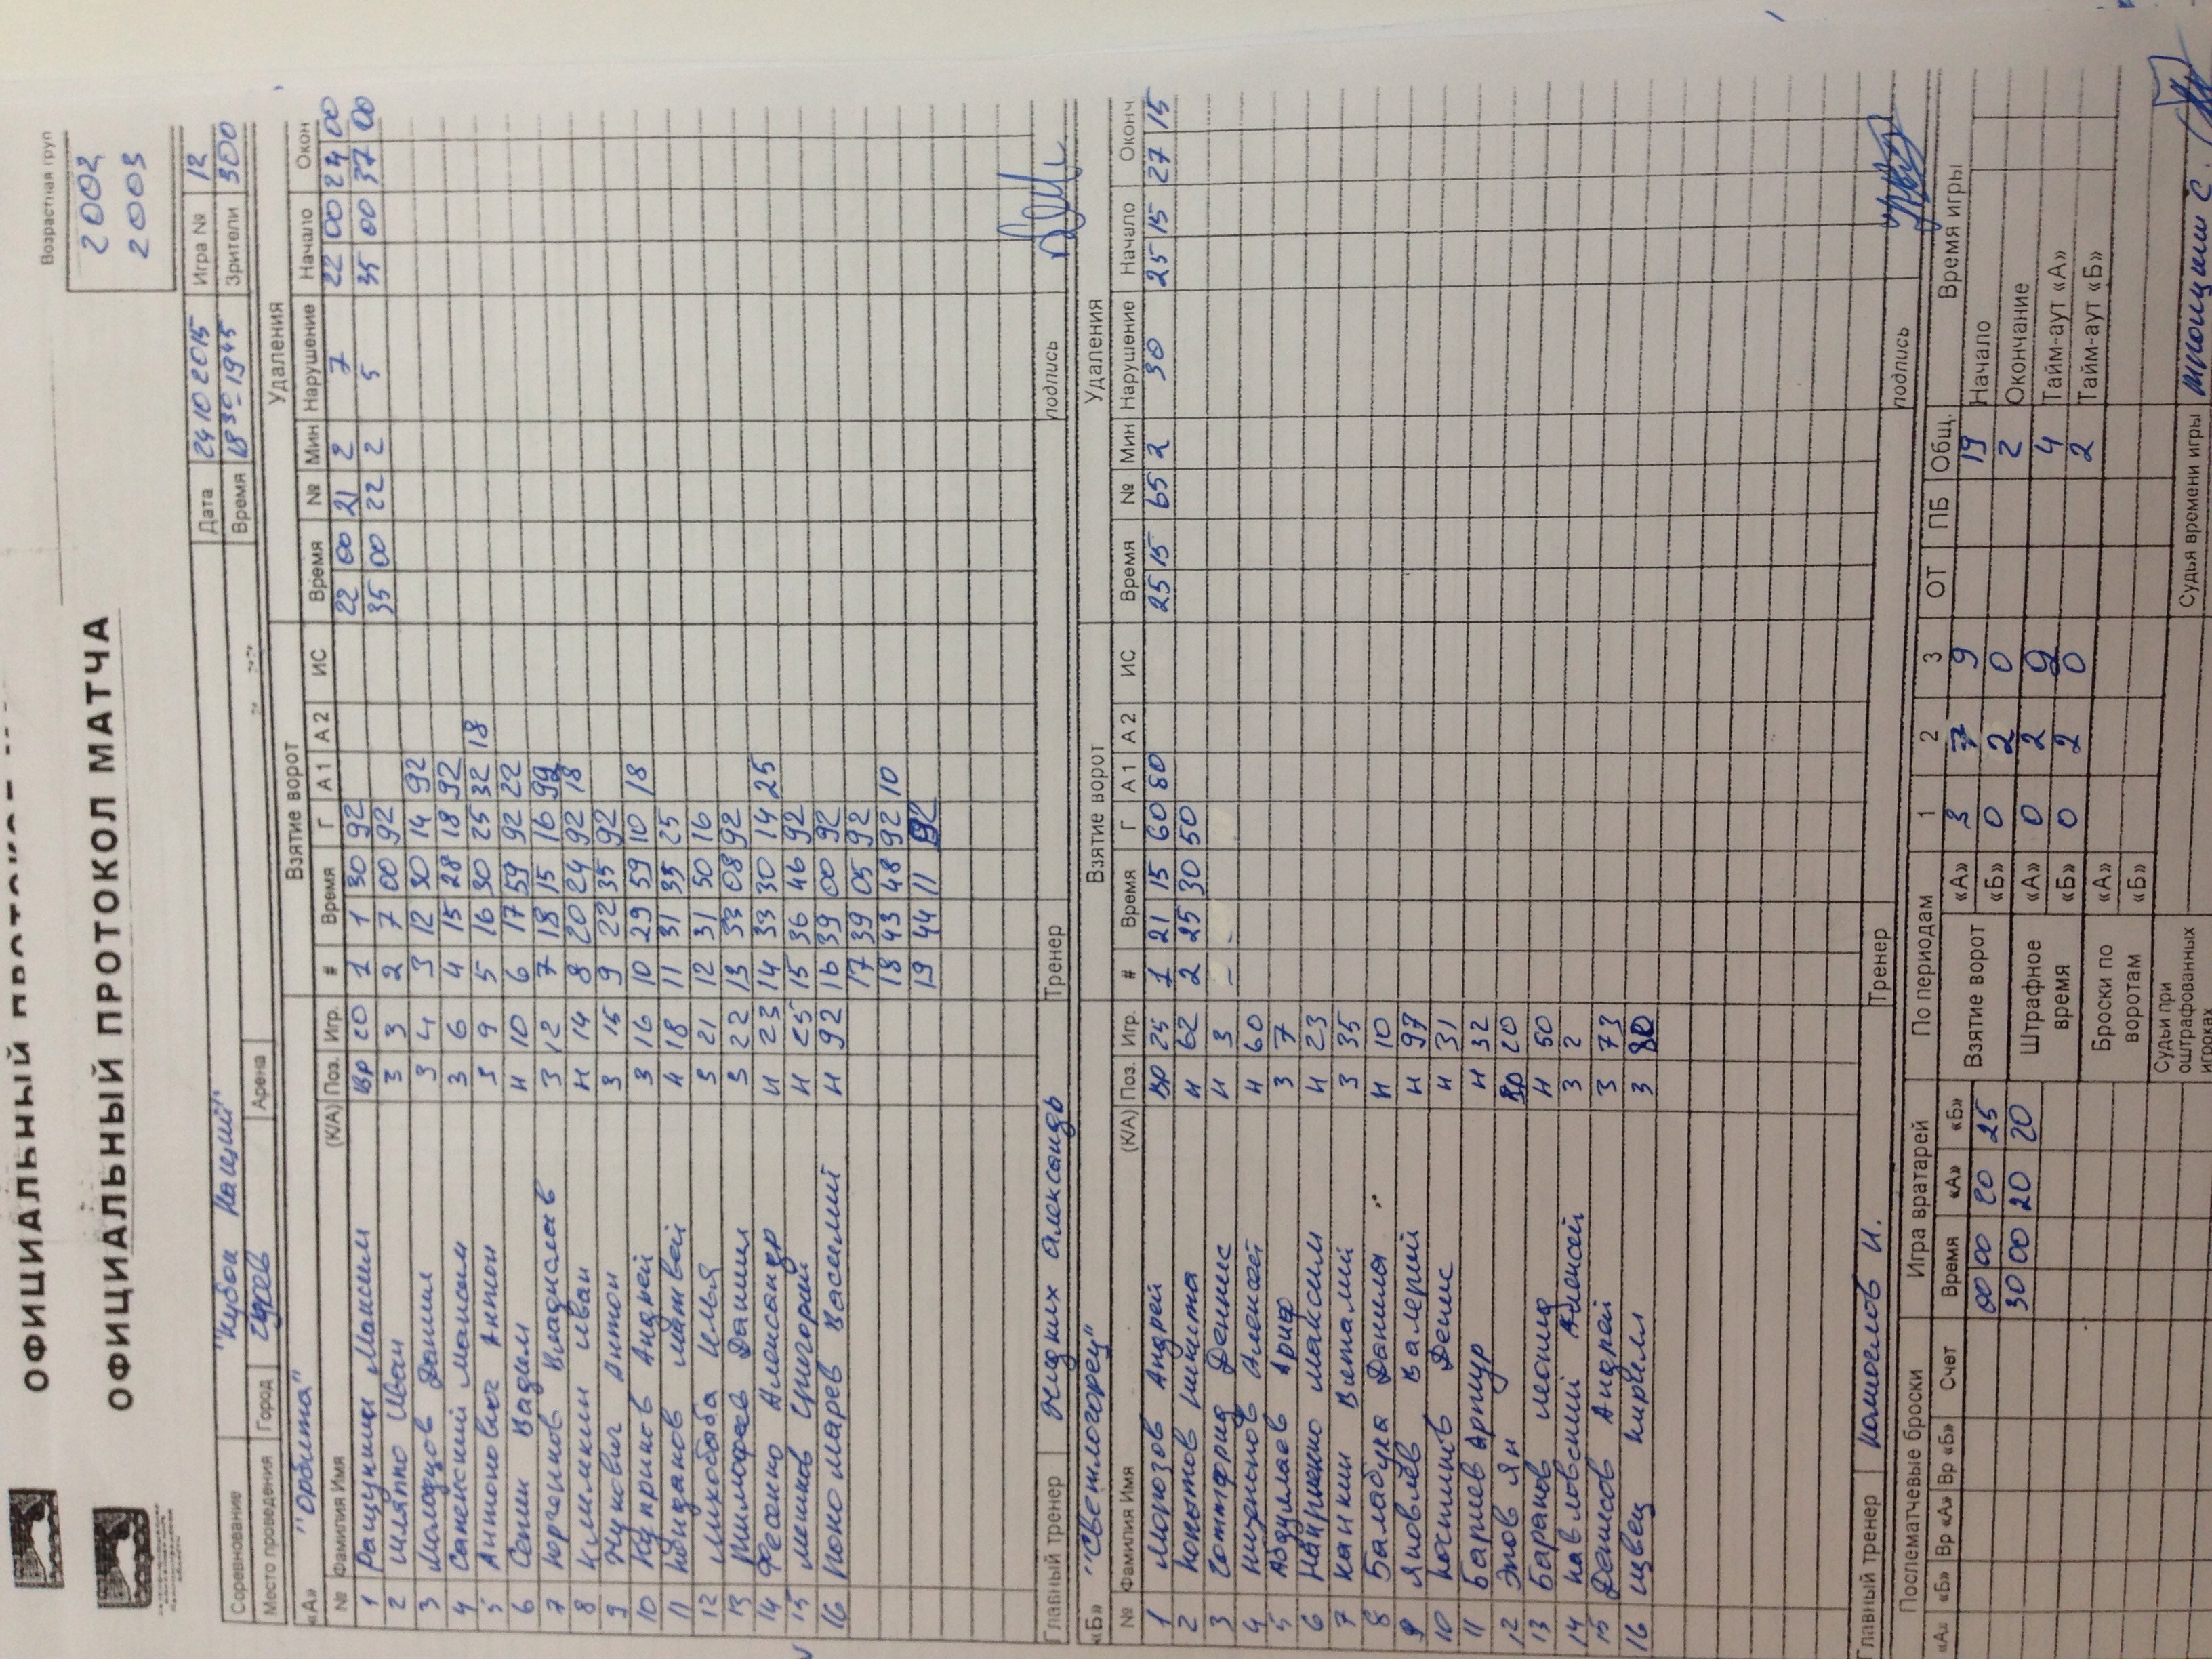 ОФИЦИАЛЬНЫЙ ПРОТОКОЛ МАТЧА
Возрастная груп
2002
2003
Соревнование "Кубок Наций" Дата 24 10 2015 Игра № 12
Место проведения Город Арена Время 18 30 - 19 45 Зрители 300
«А» "Орбита" Взятие ворот Удаления
№ Фамилия Имя (К/А) Поз. Игр. # Время Г А 1 А 2 ИС Время № Мин Нарушение Начало Окон
1 Ращупкин Максим Вр 20 1 1 30 92 22 00 21 2 7 22 00 24 00
2 Шляпко Иван З 3 2 7 00 92 35 00 22 2 5 35 00 37 00
3 Молодцов Данил З 4 3 12 30 14 92
4 Сапенский Максим З 6 4 15 28 18 92
5 Антонович Антон З 9 5 16 30 25 32 18
6 Сенин Вадим Н 10 6 17 59 92 22
7 Юргенков Владислав З 12 7 18 15 16 99
8 Климкин Иван Н 14 8 20 24 92 18
9 Жукович Антон З 15 9 22 35 92
10 Куприков Андрей З 16 10 29 59 10 18
11 Матвей Н 18 11 31 35 25
12 Лихобаба Илья З 21 12 31 50 16
13 Пилюфаев Данил З 22 13 33 08 92
14 Фесенко Александр Н 23 14 33 30 14 25
15 Мешков Григорий Н 25 15 36 46 92
16 Пономарев Василий Н 92 16 39 00 92
17 39 05 92
18 43 48 92 10
19 44 11 92
Главный тренер Жидких Александр Тренер подпись
«Б» "Светлогорец" Взятие ворот Удаления
№ Фамилия Имя (К/А) Поз. Игр. # Время Г А 1 А 2 ИС Время № Мин Нарушение Начало Оконч
1 Морозов Андрей Вр 25 1 21 15 60 80 25 15 65 2 30 25 15 27 15
2 Копытов Никита Н 62 2 25 30 50
3 Готтфрид Деннис Н 3
4 Алексей Н 60
5 Абдуллаев Ариф З 7
6 Найренко Максим Н 23
7 Канкин Виталий З 35
8 Балабуха Данила Н 10
9 Яковлев Валерий Н 97
10 Костиков Денис Н 31
11 Бариев Артур Н 32
12 Эпов Ян Вр 20
13 Баранов Леонид Н 50
14 Павловский Алексей З 2
15 Денисов Андрей З 73
16 Швец Кирилл З 80
Главный тренер Комоглов И. Тренер подпись
Послематчевые броски Игра вратарей По периодам 1 2 3 ОТ ПБ Общ. Время игры
«А» «Б» Вр «А» Вр «Б» Счет Время «А» «Б» Взятие ворот «А» 3 7 9 19 Начало
00 00 20 25 «Б» 0 2 0 2 Окончание
30 00 20 20 Штрафное время «А» 0 2 2 4 Тайм-аут «А»
«Б» 0 2 0 2 Тайм-аут «Б»
Броски по воротам «А»
«Б»
Судьи при оштрафованных игроках Судья времени игры